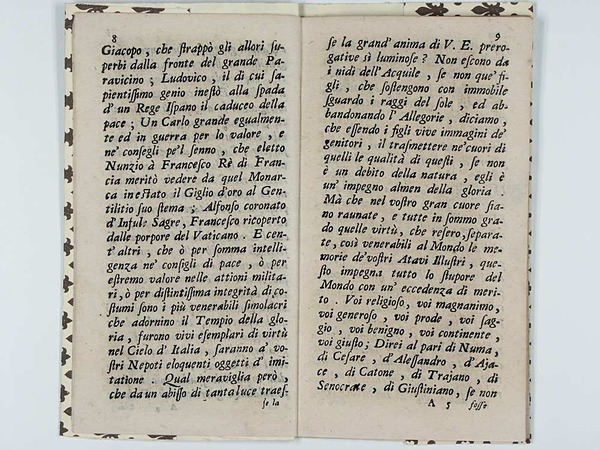 8
Giacopo, che strappò gli allori su-
perbi dalla fronte del grande Pa-
ravicino; Ludovico, il di cui sa-
pientissimo genio inestò alla spada
d'un Rege Ispano il caduceo della
pace; Un Carlo grande egualmen-
te ed in guerra per lo valore, e
ne' consigli pe'l senno, che eletto
Nunzio à Francesco Rè di Fran-
cia meritò vedere da quel Monar-
ca inestato il Giglio d'oro al Gen-
tilitio suo stema; Alfonso coronato
d'Infule Sagre, Francesco ricoperto
dalle porpore del Vaticano. E cent'
altri, che ò per somma intelli-
genza ne' consigli di pace, ò per
estremo valore nelle attioni milita-
ri, ò per distintissima integrità di co-
stumi sono i più venerabili simolacri
che adornino il Tempio della glo-
ria, furono vivi esemplari di virtù
nel Cielo d'Italia, saranno a' vo-
stri Nepoti eloquenti oggetti d'imi-
tatione. Qual meraviglia però,
che da un abisso di tanta luce traes-
se la
9
se la grand'anima di V. E. prero-
gative sì luminose? Non escono da
i nidi dell'Acquile, se non que' fi-
gli, che sostengono con immobile
sguardo i raggi del sole, ed ab-
bandonando l'Allegorie, diciamo,
che essendo i figli vive immagini de'
genitori, il trasmettere ne' cuori di
quelli le qualità di questi, se non
è un debito della natura, egli è
un' impegno almen della gloria.
Mà che nel vostro gran cuore sia-
no raunate, e tutte in sommo gra-
do quelle virtù, che resero, separa-
te, così venerabili al Mondo le me-
morie de' vostri Atavi Illustri, que-
sto impegna tutto lo stupore del
Mondo con un' eccedenza di meri-
to. Voi religioso, voi magnanimo,
voi generoso, voi prode, voi sag-
gio, voi benigno, voi continente,
voi giusto; Direi al pari di Numa,
di Cesare, d'Alessandro, d'Aja-
ce, di Catone, di Trajano, di
Senocrate, di Giustiniano, se non
A 5 fosse